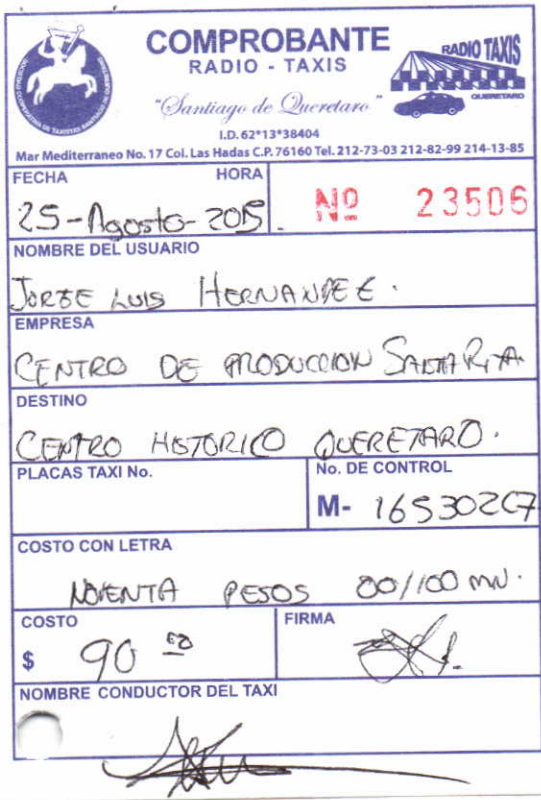 COMPROBANTE
RADIO - TAXIS
"Santiago de Queretaro"
I.D. 62*13*38404
RADIO TAXIS
QUERETARO
Mar Mediterraneo No. 17 Col. Las Hadas C.P. 76160 Tel. 212-73-03 212-82-99 214-13-85
FECHA HORA
25-Agosto-2015. Nº 23506
NOMBRE DEL USUARIO
JORGE LUIS HERNANDEZ.
EMPRESA
CENTRO DE PRODUCCION SANTA RITA
DESTINO
CENTRO HISTORICO QUERETARO.
PLACAS TAXI No. No. DE CONTROL
M- 165302C7
COSTO CON LETRA
NOVENTA PESOS 00/100 MN.
COSTO FIRMA
$ 90 00
NOMBRE CONDUCTOR DEL TAXI